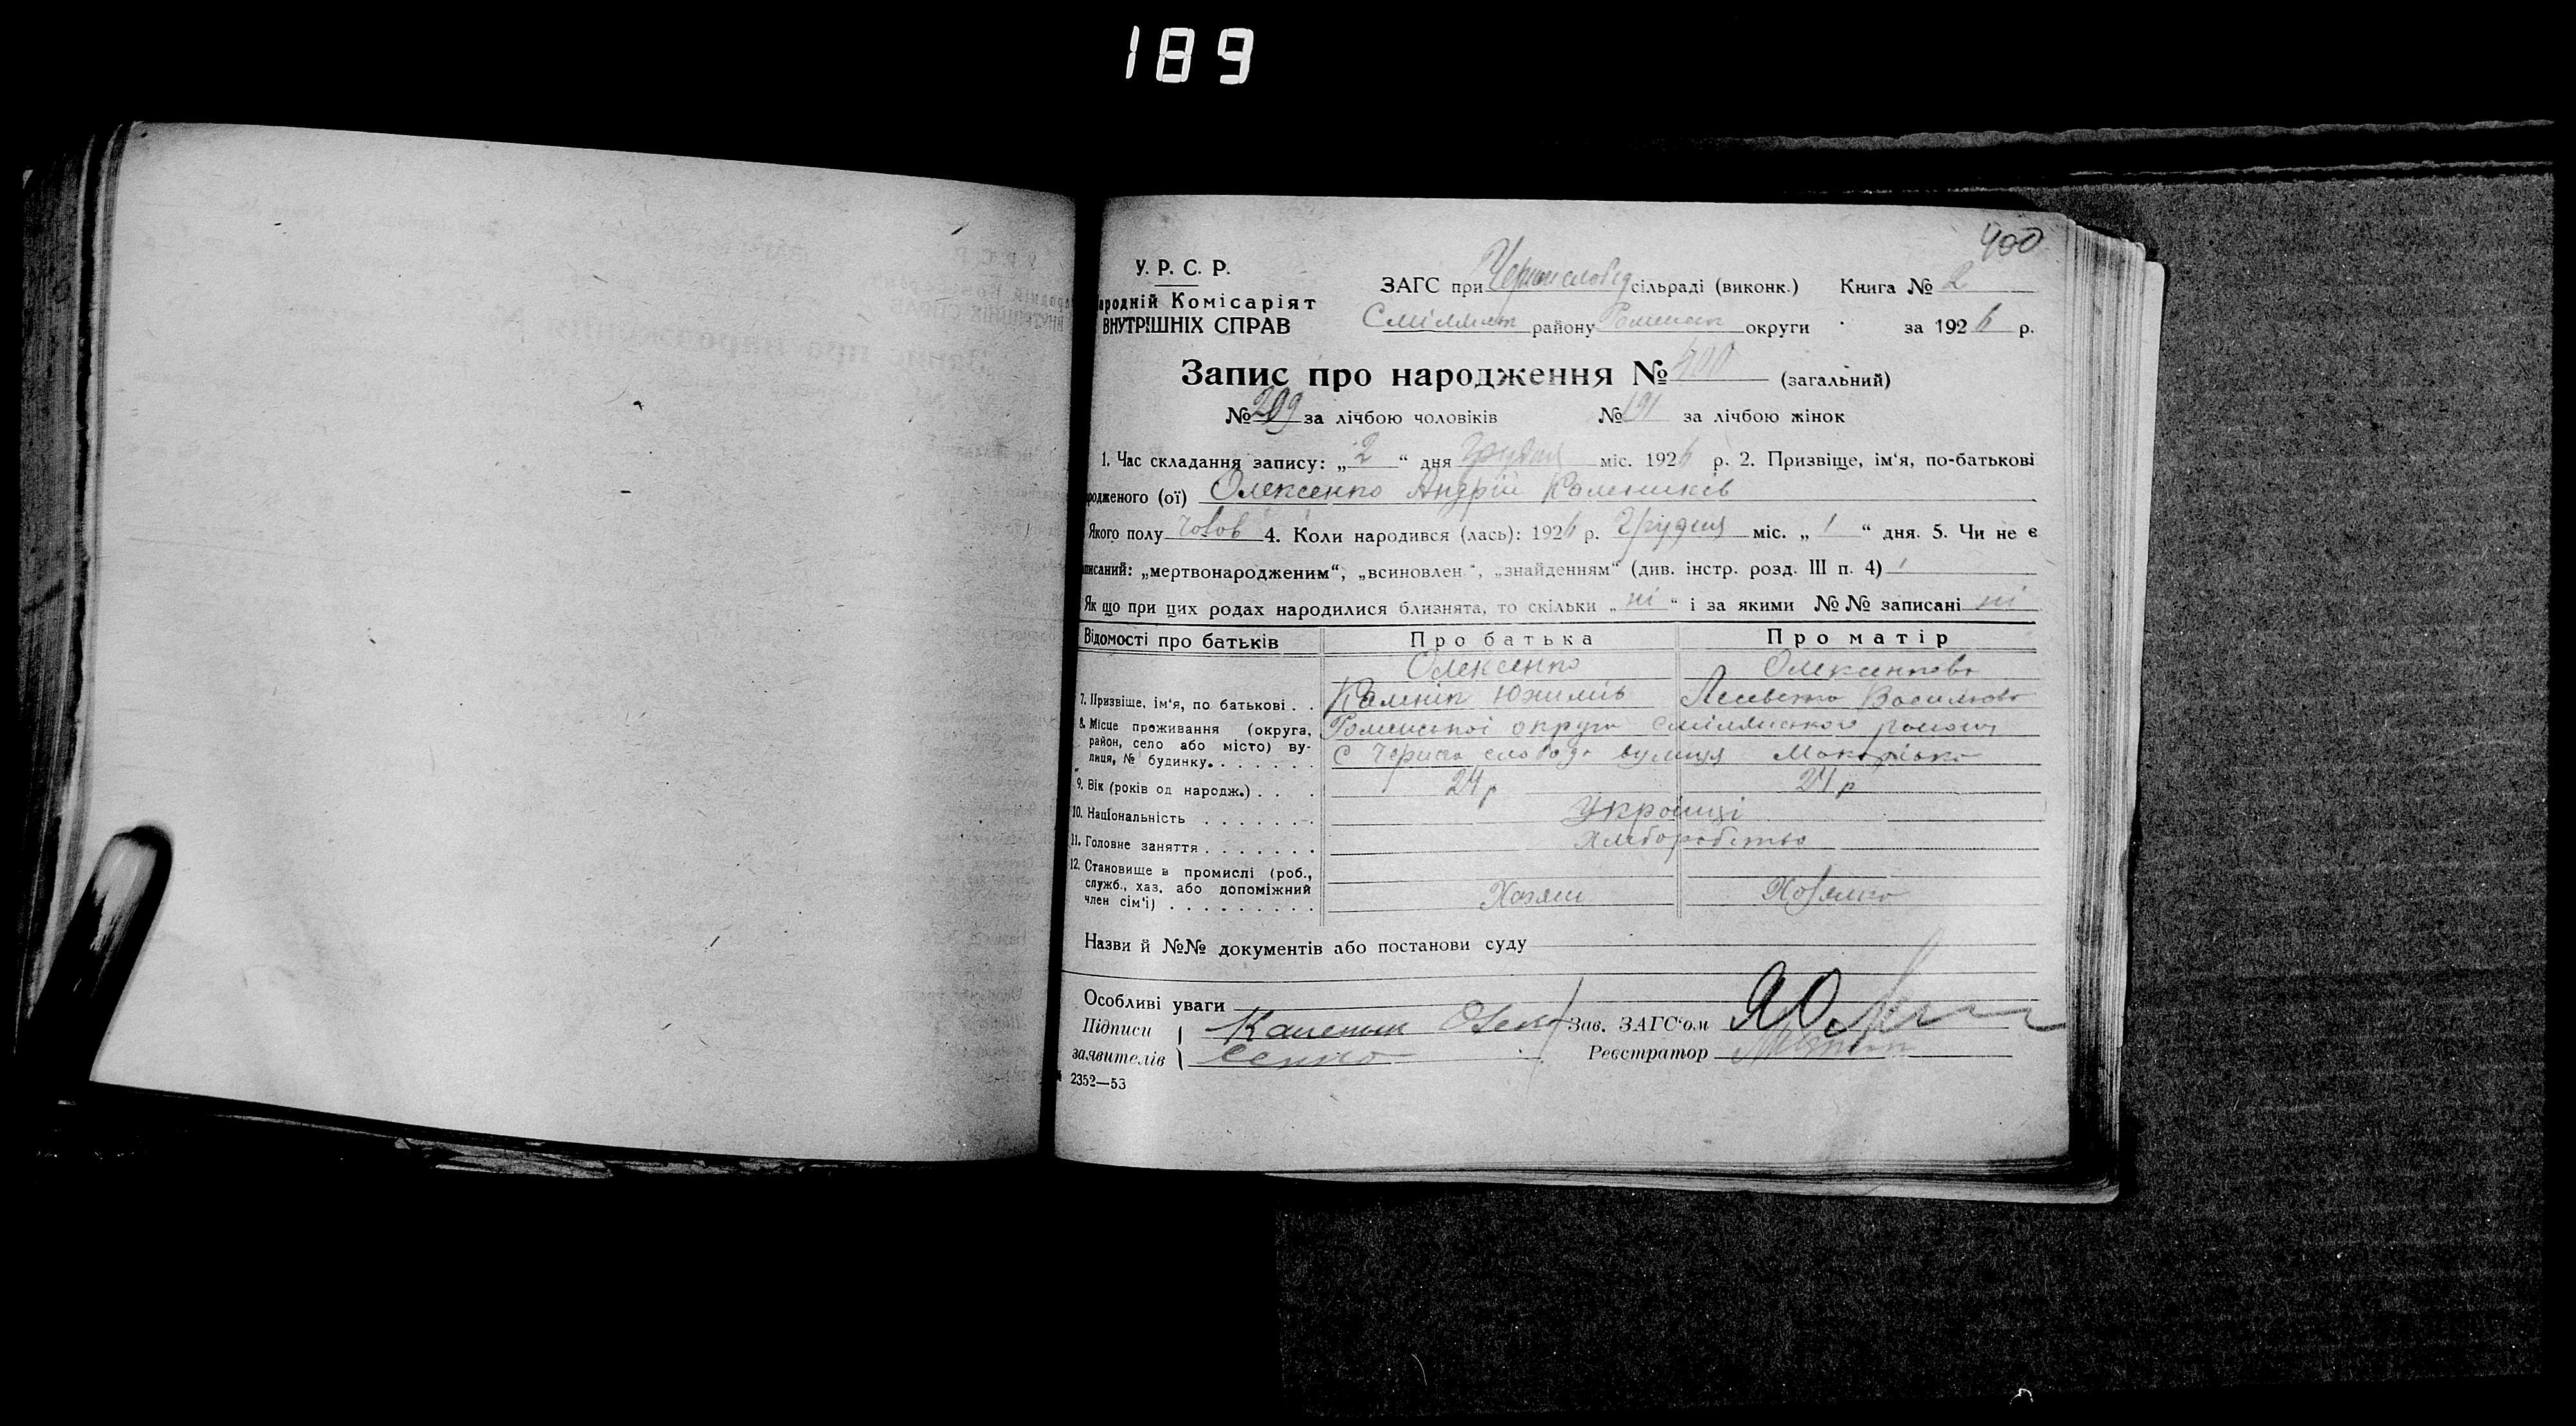 189
400
У. Р. С. Р.
ародній Комісаріят
ВНУТРІШНІХ СПРАВ
ЗАГС при Чернислобід сільраді (виконк.) Книга № 2
Смілянськ району Роменськ округи за 1926 р.
Запис про народження № 400 (загальний)
№ 209 за лічбою чоловіків № 191 за лічбою жінок
1. Час складання запису: „2“ дня Грудня міс. 1926 р. 2. Призвіще, ім‘я, по-батькові
родженого (ої) Олексенко Андрій Калеників
Якого полу чолов 4. Коли народився (лась): 1926 р. Грудня міс. „1“ дня. 5. Чи не є
писаний: „мертвонародженим“, „всиновлен.“, „знайденням“ (див. інстр. розд. III п. 4)
Як що при цих родах народилися близнята, то скільки „ні“ і за якими №№ записані ні
Відомості про батьків Про батька Про матір
Олексенко Олексенкова
7. Призвіще, ім‘я, по батькові . . Каленік Юхимів Лисавета Василева
8. Місце проживання (округа, Роменської округи Смілянського району
район, село або місто) ву-
лиця, № будинку. . . . . . . С Черна слобода вулиця
9. Вік (років од народж.) . . . 24 р 24 р
10. Національність . . . . . . . Українці
11. Головне заняття . . . . . . . Хліборобство
12. Становище в промислі (роб.,
служб., хаз. або допоміжний
член сім‘ї) . . . . . . . . . Хазяин Хозяйка
Назви й №№ документів або постанови суду
Особливі уваги
Підписи Каленик Олек Зав. ЗАГС‘ом
заявителів сенко Реєстратор
2352—53